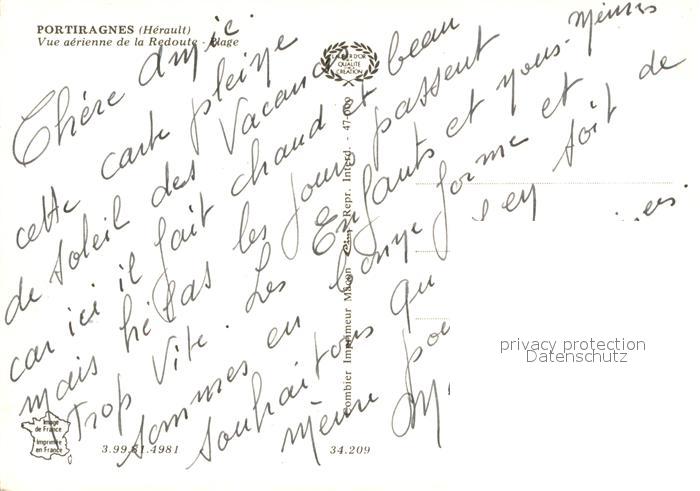 PORTIRAGNES (Hérault)
Vue aérienne de la Redoute - Plage
LABEL D'OR
QUALITÉ
CRÉATION
Chère Amie
cette carte pleine
de soleil des Vacances
car ici il fait chaud et beau
mais hélas les jours passent
Trop vite. Les Enfants et nous-mêmes
sommes en bonne forme et
souhaitons qu' en soit de
même po
M
Combier Imprimeur Mâcon Repr. Interd. - 47-009
Image
de France
Imprimée
en France
3.99.81.4981
34.209
privacy protection
Datenschutz